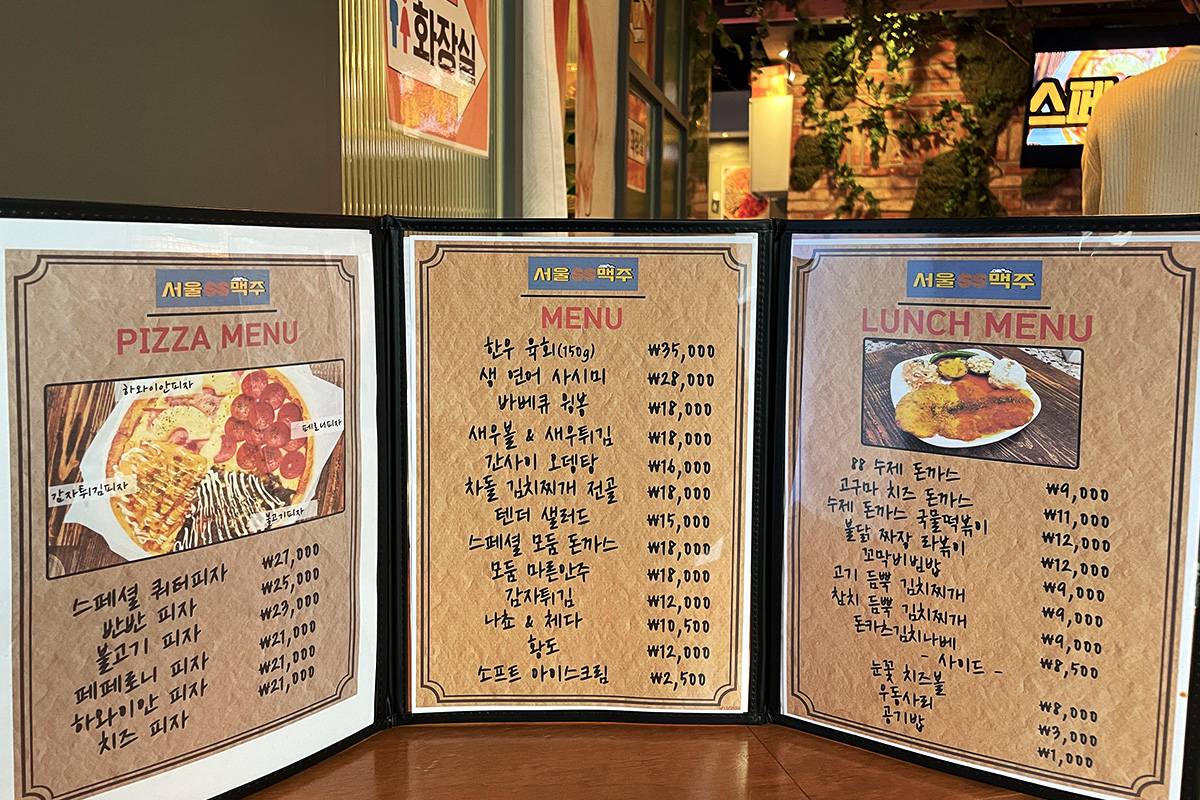 화장실
스페
서울 88맥주
PIZZA MENU
하와이안피자
페로니피자
감자튀김피자
불고기피자
스페셜 쿼터피자 ₩27,000
반반 피자 ₩25,000
불고기 피자 ₩23,000
페페로니 피자 ₩21,000
하와이안 피자 ₩21,000
치즈 피자 ₩21,000
서울 88맥주
MENU
한우 육회(150g) ₩35,000
생 연어 사시미 ₩28,000
바베큐 윙봉 ₩18,000
새우볼 & 새우튀김 ₩18,000
간사이 오뎅탕 ₩16,000
차돌 김치찌개 전골 ₩18,000
텐더 샐러드 ₩15,000
스페셜 모둠 돈까스 ₩18,000
모둠 마른안주 ₩18,000
감자튀김 ₩12,000
나쵸 & 체다 ₩10,500
황도 ₩12,000
소프트 아이스크림 ₩2,500
서울 88맥주
LUNCH MENU
88 수제 돈까스 ₩9,000
고구마 치즈 돈까스 ₩11,000
수제 돈까스 국물떡볶이 ₩12,000
불닭 짜장 라볶이 ₩12,000
꼬막비빔밥 ₩9,000
고기 듬뿍 김치찌개 ₩9,000
참치 듬뿍 김치찌개 ₩9,000
돈카츠김치나베 ₩8,500
- 사이드 -
눈꽃 치즈볼 ₩8,000
우동사리 ₩3,000
공기밥 ₩1,000